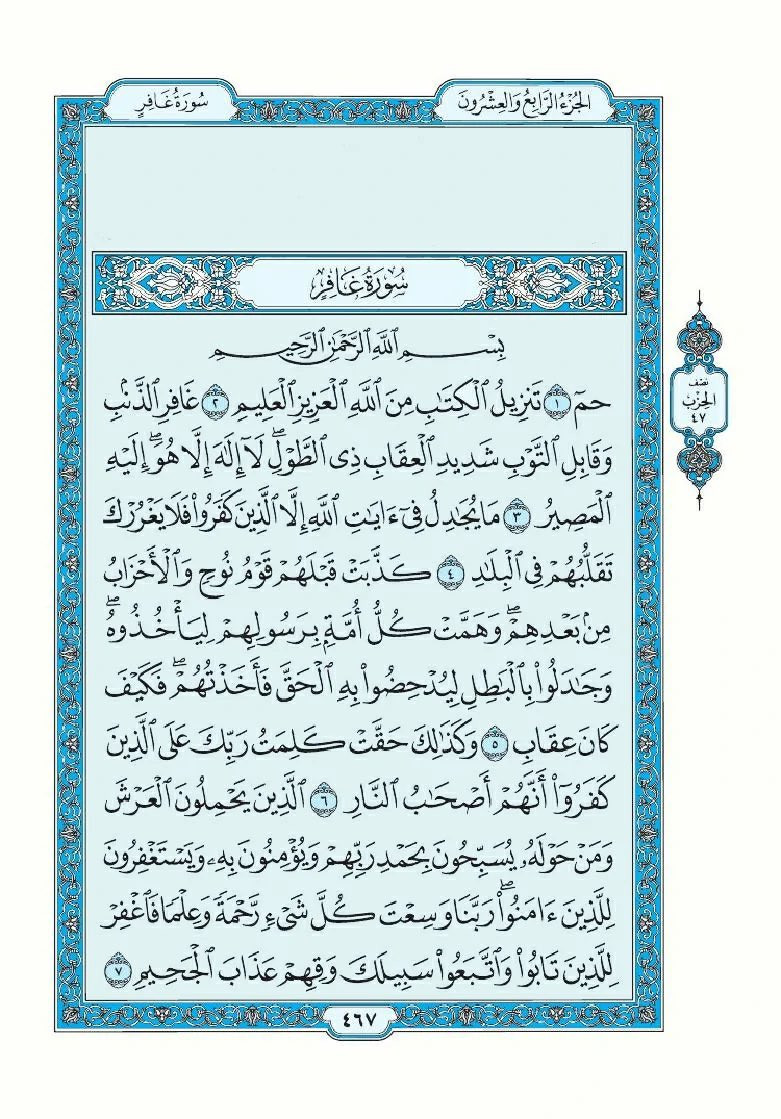 الجُزْءُ الرَّابِعُ وَالعِشْرُونَ
سُورَةُ غَافِرٍ
سُورَةُ غَافِرٍ
بِسْمِ ٱللَّهِ ٱلرَّحْمَٰنِ ٱلرَّحِيمِ
حمٓ ١ تَنزِيلُ ٱلْكِتَٰبِ مِنَ ٱللَّهِ ٱلْعَزِيزِ ٱلْعَلِيمِ ٢ غَافِرِ ٱلذَّنۢبِ
وَقَابِلِ ٱلتَّوْبِ شَدِيدِ ٱلْعِقَابِ ذِى ٱلطَّوْلِۖ لَآ إِلَٰهَ إِلَّا هُوَۖ إِلَيْهِ
ٱلْمَصِيرُ ٣ مَا يُجَٰدِلُ فِىٓ ءَايَٰتِ ٱللَّهِ إِلَّا ٱلَّذِينَ كَفَرُوا۟ فَلَا يَغْرُرْكَ
تَقَلُّبُهُمْ فِى ٱلْبِلَٰدِ ٤ كَذَّبَتْ قَبْلَهُمْ قَوْمُ نُوحٍ وَٱلْأَحْزَابُ
مِنۢ بَعْدِهِمْۖ وَهَمَّتْ كُلُّ أُمَّةٍۭ بِرَسُولِهِمْ لِيَأْخُذُوهُۖ
وَجَٰدَلُوا۟ بِٱلْبَٰطِلِ لِيُدْحِضُوا۟ بِهِ ٱلْحَقَّ فَأَخَذْتُهُمْۖ فَكَيْفَ
كَانَ عِقَابِ ٥ وَكَذَٰلِكَ حَقَّتْ كَلِمَتُ رَبِّكَ عَلَى ٱلَّذِينَ
كَفَرُوٓا۟ أَنَّهُمْ أَصْحَٰبُ ٱلنَّارِ ٦ ٱلَّذِينَ يَحْمِلُونَ ٱلْعَرْشَ
وَمَنْ حَوْلَهُۥ يُسَبِّحُونَ بِحَمْدِ رَبِّهِمْ وَيُؤْمِنُونَ بِهِۦ وَيَسْتَغْفِرُونَ
لِلَّذِينَ ءَامَنُوا۟ۖ رَبَّنَا وَسِعْتَ كُلَّ شَىْءٍ رَّحْمَةً وَعِلْمًا فَٱغْفِرْ
لِلَّذِينَ تَابُوا۟ وَٱتَّبَعُوا۟ سَبِيلَكَ وَقِهِمْ عَذَابَ ٱلْجَحِيمِ ٧
نصف
الحِزْب
٤٧
٤٦٧